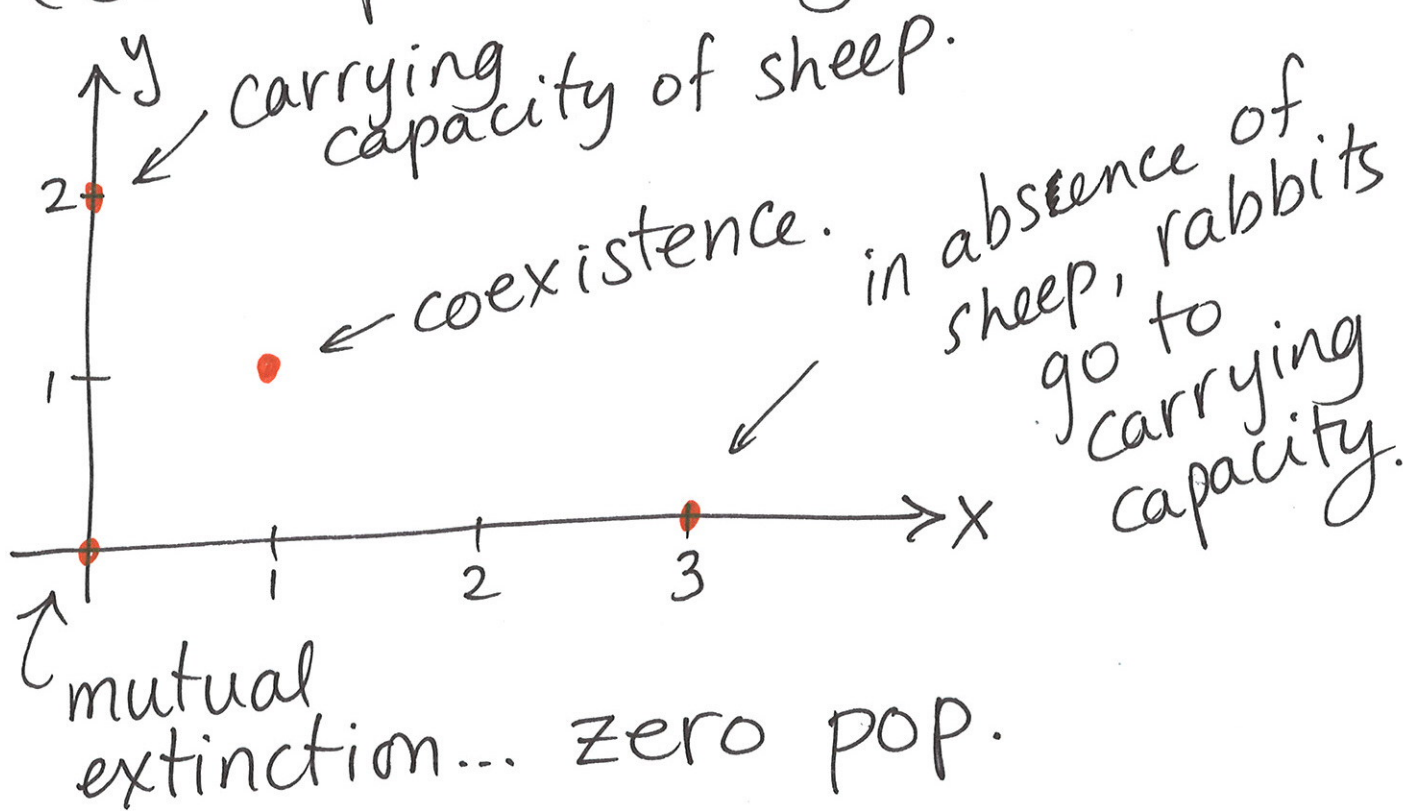 y
carrying
capacity of sheep.
2
coexistence.
in absence of
sheep, rabbits
go to
carrying
capacity.
1
x
1
2
3
mutual
extinction... zero pop.